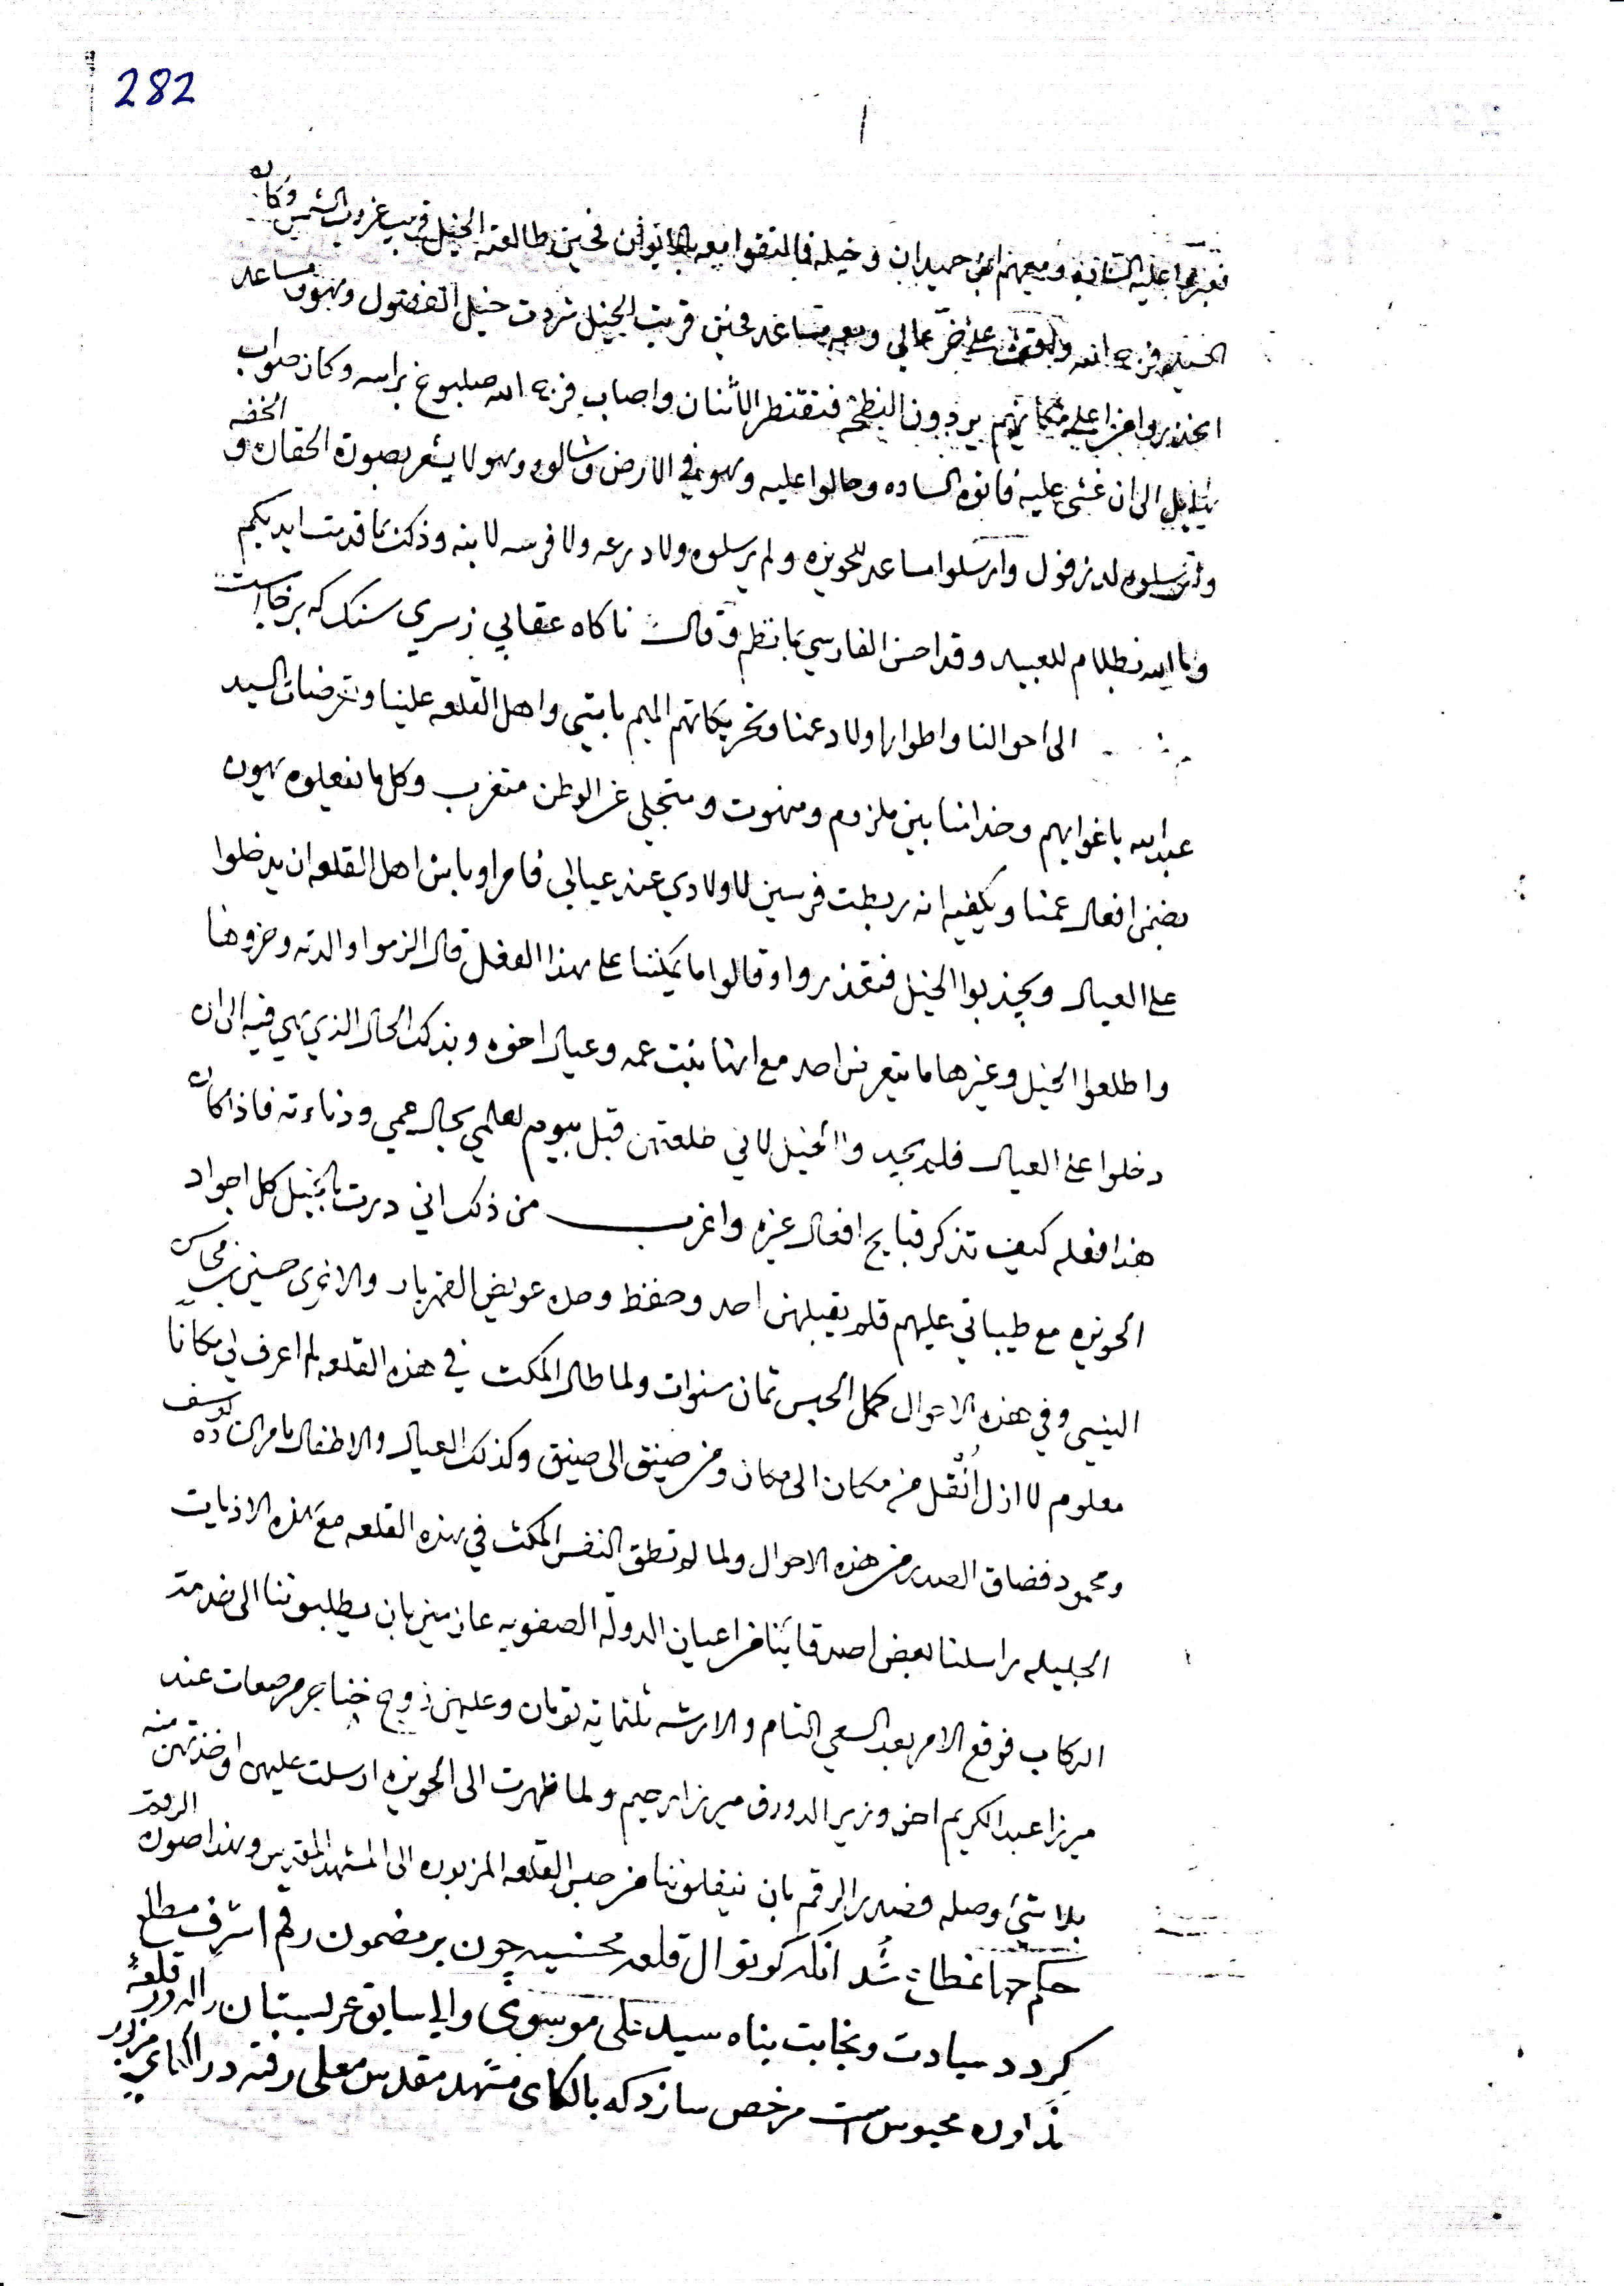 282
فعبروا عليه الشاذه ومعهم ابن حميدان وخيله فالتقوا معه فحين طالعته الخيل قريب غروب الشمس وكان
السيد فرج الله واقف على عالي ومعه مساعد فحين قربت الخيل تردت خيل الفضول وهو ومساعد
على مكانهم يردون فتقنطر الاثنان واصاب فرج الله صلبوخ براسه وكان صواب
الى ان غشى عليه فاتوه الساده وحالوا عليه وهو في الارض وشالوه وهو لا يشعر بصورة الحقاره و الخفه
لدزفول وارسلوا مساعد للحويزه ولم يرسلوه ولا درعه ولا فرسه لابنه وذلك بما قدمت ايديكم
وما الله بظلام للعبيد وقد احسن الفارسي بما نظم وقال ناكاه عقابي زسري سنك كه برخاست
الى احوالنا واطوار اولاد عمنا وتحريكاتهم المهم وأهل القلعه علينا وتعرضات السيد
عبد الله باغوايهم وخدامنا بين ملزوم ومنهوت ومتجلي عن الوطن متغرب وكل ما نفعلوه يهون
بضمن افعال عمنا ويكفيه انه ربطت فرسين لاولادي عند عيالي فامر اوباش اهل القلعه ان يدخلوا
على العيال ويجذبوا الخيل فتعذروا وقالوا ما يمكننا على هذا الفعل قال الزموا والدته وخزوها
واطلعوا الخيل وغيرها ما يتعرض احد مع انها بنت عمه وعيال اخوه وبذلك الحال الذي هي فيه الى ان
دخلوا على العيال فلم يجدوا الخيل لاني خلعتهن قبل بيوم لعلمي بحال عمي ودناءته فاذا كان
هذا فعله كيف تذكر قبايح افعال غيره واغرب من ذلك اني درت بالخيل كل اجواد
الحويزه مع طيباتي عليهم فلم يقبلهن احد وحفظ وحده عويض القهربار والاخرى حسين بن محاسن
النيسي وفي هذه الاحوال كمل الحبس ثمان سنوات ولما طال المكث في هذه القلعه لم اعرف لي مكانا
معلوم لا ازل أنقل من مكان الى مكان ومن ضيق الى ضيق وكذلك العيال والاطفال بامر السادة يوسف
ومحمود فضاق الصدر من هذه الاحوال ولما لم تطق النفس المكث في هذه القلعه مع هذه الاذيات
الجليله راسلنا بعض اصدقائنا من اعيان الدولة الصفويه عازمين بان يطلبوننا الى خدمت
الركاب فوقع الامر بعد السعي التام والارشه ثلثماية تومان وعليهن زوج خناجر مرصعات عند
ميرزا عبد الكريم اخو وزير الدورق ميرزا رحيم ولما ظهرت الى الحويزه ارسلت عليهن واخذتهن منه
بلا شيء وصله فصدر الرقم بان ينقلوننا من حبس القلعه المزبوره الى المشهد المقدس وهذا صورة الرقم
حكم جهانمطاع شد انكه كوتوال قلعه محسنيه چون بر مضمون رقم اشرف مطلع
كردد سيادت ونجابت پناه سيد علي موسوي والي سابق عربستان را كه در قلعهٔ
محبوس است مرخص سازد كه بالكاى مشهد مقدس معلى رفته در الكاى مزبور